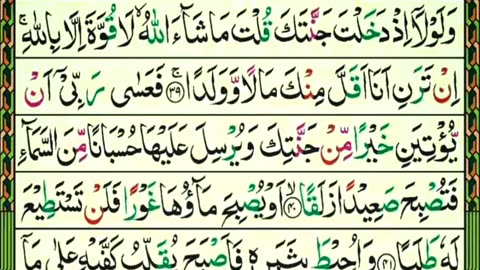 وَلَوْلَاۤ اِذْ دَخَلْتَ جَنَّتَكَ قُلْتَ مَا شَآءَ اللّٰهُ ۙ لَا قُوَّةَ اِلَّا بِاللّٰهِ ۚ
اِنْ تَرَنِ اَنَا اَقَلَّ مِنْكَ مَالًا وَّوَلَدًا ۚ ﴿۳۹﴾ فَعَسٰى رَبِّيْۤ اَنْ
يُّؤْتِيَنِ خَيْرًا مِّنْ جَنَّتِكَ وَيُرْسِلَ عَلَيْهَا حُسْبَانًا مِّنَ السَّمَآءِ
فَتُصْبِحَ صَعِيْدًا زَلَقًا ۙ ﴿۴۰﴾ اَوْ يُصْبِحَ مَآؤُهَا غَوْرًا فَلَنْ تَسْتَطِيْعَ
لَهٗ طَلَبًا ﴿۴۱﴾ وَاُحِيْطَ بِثَمَرِهٖ فَاَصْبَحَ يُقَلِّبُ كَفَّيْهِ عَلٰى مَاۤ